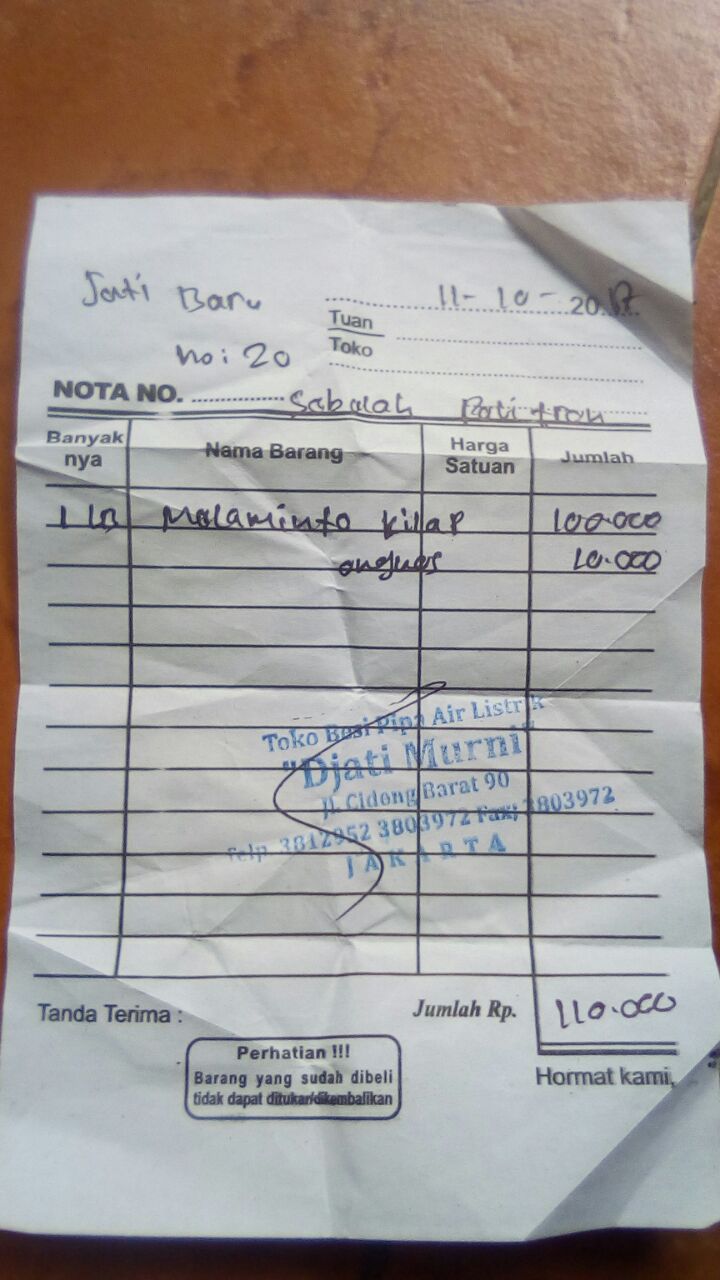 Jati Baru
no: 20
11-10-2017
Tuan
Toko
NOTA NO. Sabalah
Banyak nya Nama Barang Harga Satuan Jumlah
1 LB Malaminto kilap 100.000
ongkos 10.000
Toko Besi Pipa Air Listrik
"Djati Murni"
Jl. Cideng Barat 90
Telp. 3812952 3803972 Fax; 3803972
JAKARTA
Tanda Terima : Jumlah Rp. 110.000
Perhatian !!!
Barang yang sudah dibeli
tidak dapat ditukar/dikembalikan
Hormat kami,